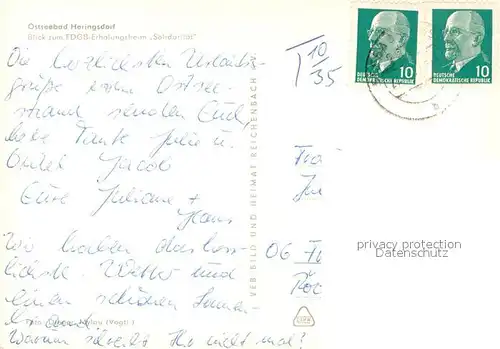 Ostseebad Heringsdorf
Blick zum FDGB-Erholungsheim „Solidarität"
Die herzlichsten Urlaubs-
grüße vom Ostsee-
strand senden Euch,
liebe Tante Julie u.
Onkel Jacob
Eure Juliane +
Hans
Wir haben das herr-
lichste Wetter und
einen schönen Sonnen-
brand.
Warum schreibt Ihr nicht mal?
VEB BILD UND HEIMAT REICHENBACH
T 10/35
10
DEUTSCHE
DEMOKRATISCHE REPUBLIK
10
DEUTSCHE
DEMOKRATISCHE REPUBLIK
06
privacy protection
Datenschutz